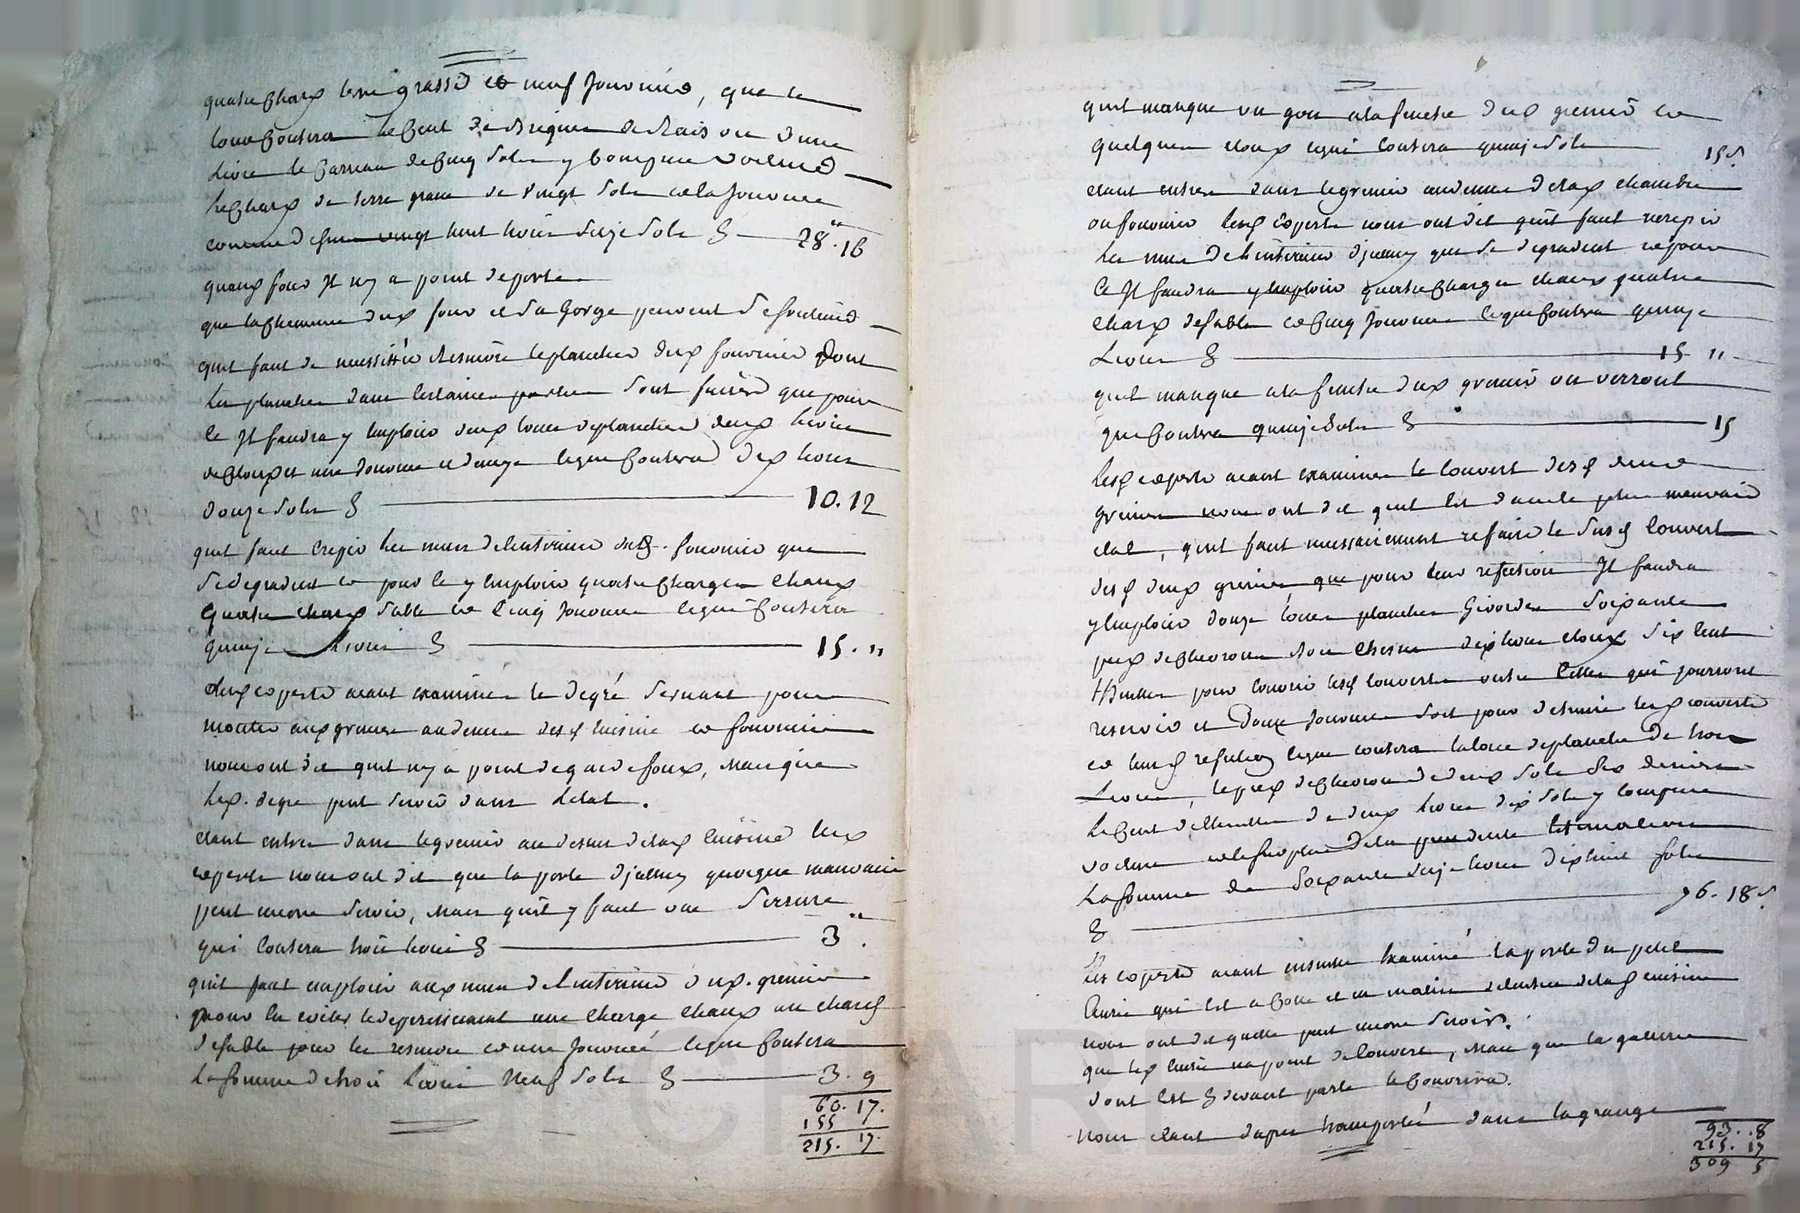 quatre charg terre grasse et neuf Journées, que le
tout Coutera le Cent de Briques de Brais ou d'une
Livre le Carreau de Cinq Sols y Compris Voiture
le Charg de terre grasse de vingt Sols et la Journée
comme dessus vingt huit livres Seize Sols § 28" 16
quaux four Jl n'y a point de porte
que la Cheminée dud. four et Sa Gorge peuvent Se Soutenir
quil faut de necessité Resuivre le plancher dud. fournier dont
Les planches dans certaines parties Sont pourries que pour
le Jl faudra y Emploier deux toises de planches deux livres
de Cloux et une Journée et demye ce qui Coutera dix livres
douze Sols § 10. 12
quil faut Crepir les murs de l'interieur dud. fournier qui
Se degradent et pour ce y Emploier quatre Charges Chaux
quatre charg Sable et Cinq Journées ce qui Coutera
quinze Livres § 15. "
Lesd. experts aiant examiner le degré Servant pour
monter aux greniers au dessus desd. Cuisine et fournier
nous ont dit quil n'y a point de garde foux, mais que
led. degré peut Servir dans l'etat.
etant entrer dans le grenier au dessus de lad. Cuisine les
experts nous ont dit que la porte d'jcelluy quoique mauvaise
peut encore Servir, mais quil y faut une Serrure
qui Coutera trois livres § 3 "
quil faut emploier aux murs de l'interieur dud. grenier
pour en eviter le deperissement une Charge Chaux un Charg
de Sable pour les resuivre et une Journée ce qui Coutera
La Somme de trois Livres Neuf Sols § 3. 9
60. 17.
155
215. 17.
quil manque un gon a la fenetre dud. grenier et
quelques cloux ce qui Coutera quinze Sols 15 s.
etant entrer dans le grenier au dessus de lad. chambre
ou fournier lesd. experts nous ont dit quil faut recrepir
les murs de l'interieur d'jcelluy qui Se degradent et pour
ce Jl faudra y Emploier quatre Charges chaux quatre
charg de Sable et Cinq Journées ce qui Coutera quinze
Livres § 15 "
quil manque a la fenetre dud. grenier un verrouil
qui Coutera quinze Sols § 15
Lesd. experts aiant examiner le Couvert desd. deux
greniers nous ont dit quil est dans le plus mauvais
etat, quil faut necessairement refaire le Susd. Couvert
desd. deux greniers que pour leur refection Jl faudra
y Emploier douze toises planches Givordes Soixante
pieds de Chevrons Bois Chesne dix livres cloux Six Cent
Thuilles pour Couvrir lesd. Couverts outre Celles qui pourront
reservir et Douze Journées Soit pour detruire lesd. couverts
et leurs refection ce qui coutera la toise de planche de trois
Livres, le pied de Chevron de deux Sols Six deniers
le Cent de Thuilles de deux livres dix Sols y Compris
voiture et le Surplus de la precedente Estimation
La Somme de Soixante Seize livres dix huit Sols
§ 76. 18 s.
Les experts aiant ensuite Examiné la porte du petit
Curié qui est a Cote et en matin de lad. Cuisine
nous ont dit quelle peut encore Servir.
que led. Curié na point de Couvert, mais que la gallerie
dont est § devant parlé le Couvrira.
Nous etant d'apres transportés dans la grange
93. 8
215. 17
309 5